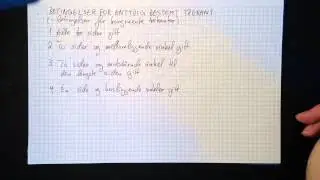 BETINGELSER FOR ENTYDIG BESTEMT TREKANT
(= Betingelser for kongruente trekanter)
1 Alle tre sider gitt
2 To sider og mellomliggende vinkel gitt
3 To sider og motstående vinkel til
den lengste siden gitt
4 En side og hosliggende vinkler gitt